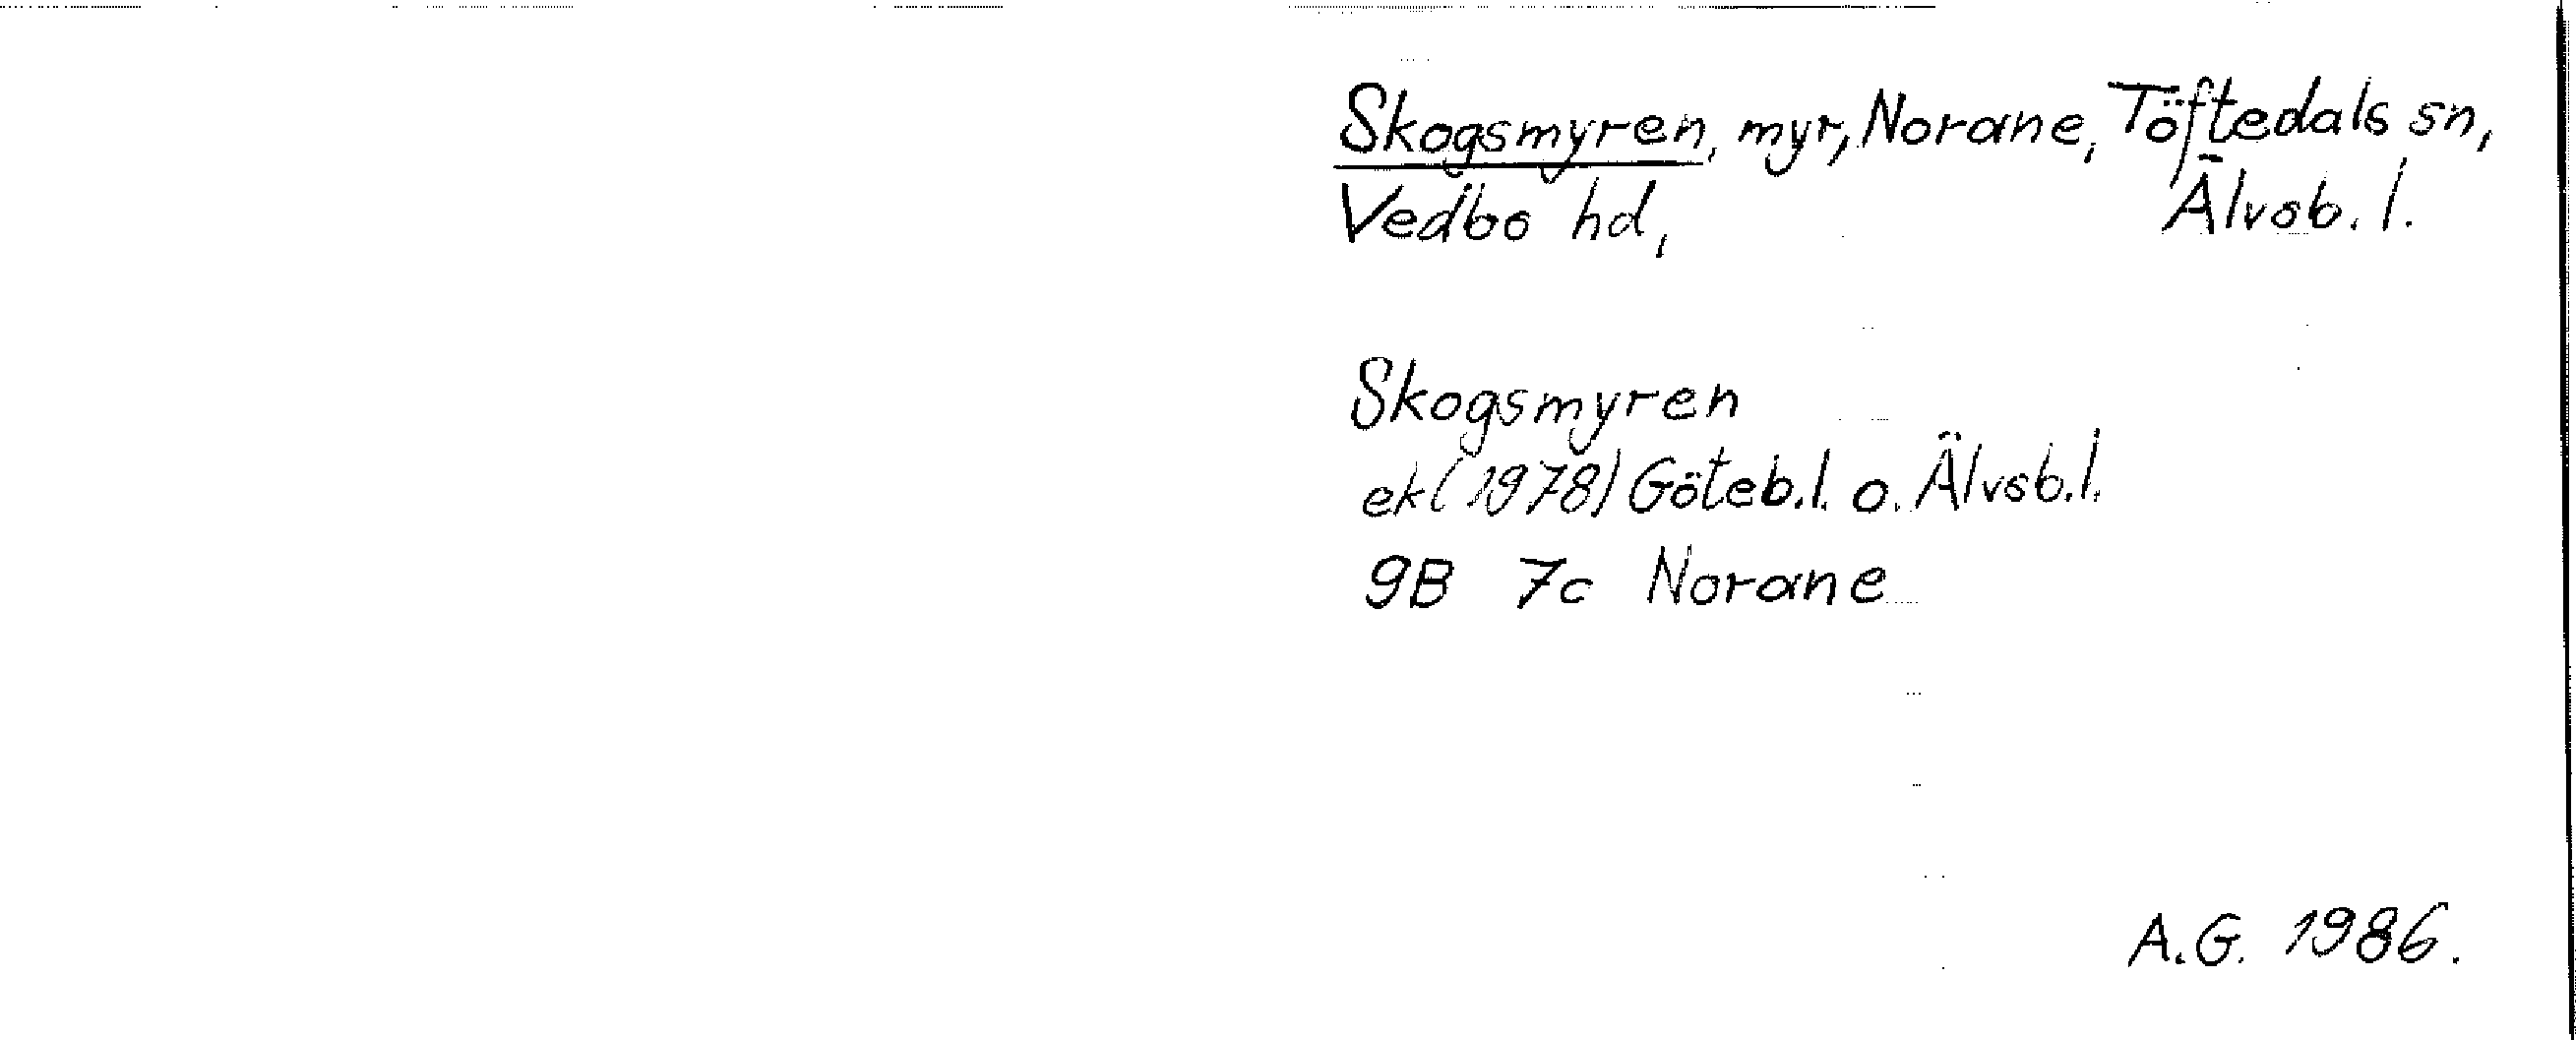 Skogsmyren, myr, Norane, Töftedals sn,
Vedbo hd, Älvsb. l.
Skogsmyren
ek (1978) Göteb.l. o. Älvsb.l.
9B 7c Norane
A.G. 1986.